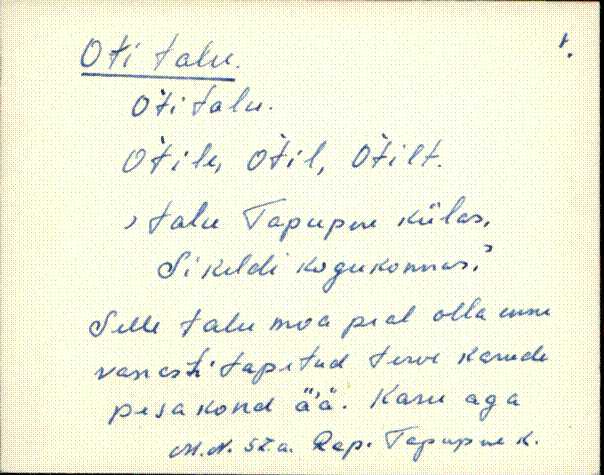 1.
Oti talu.
Òti talu.
Òtile, Òtil, Òtilt.
, talu Tapupere külas,
Sikeldi kogukonnas.'
Selle talu moa peal olla enne
vanasti tapetud terve karude
pesakond ää. Karu aga
M.N. 52.a. Rap. Tapupere k.